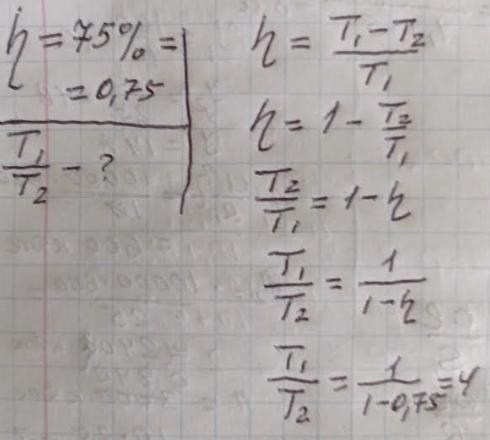 η = 75% =
= 0,75
T₁/T₂ - ?
η = (T₁ - T₂)/T₁
η = 1 - T₂/T₁
T₂/T₁ = 1 - η
T₁/T₂ = 1/(1 - η)
T₁/T₂ = 1/(1 - 0,75) = 4